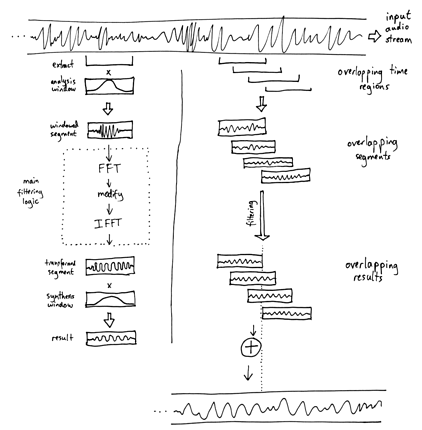 input
audio
stream
extract
x
analysis
window
overlapping time
regions
windowed
segment
overlapping
segments
main
filtering
logic
FFT
modify
IFFT
filtering
transformed
segment
x
synthesis
window
overlapping
results
result
+